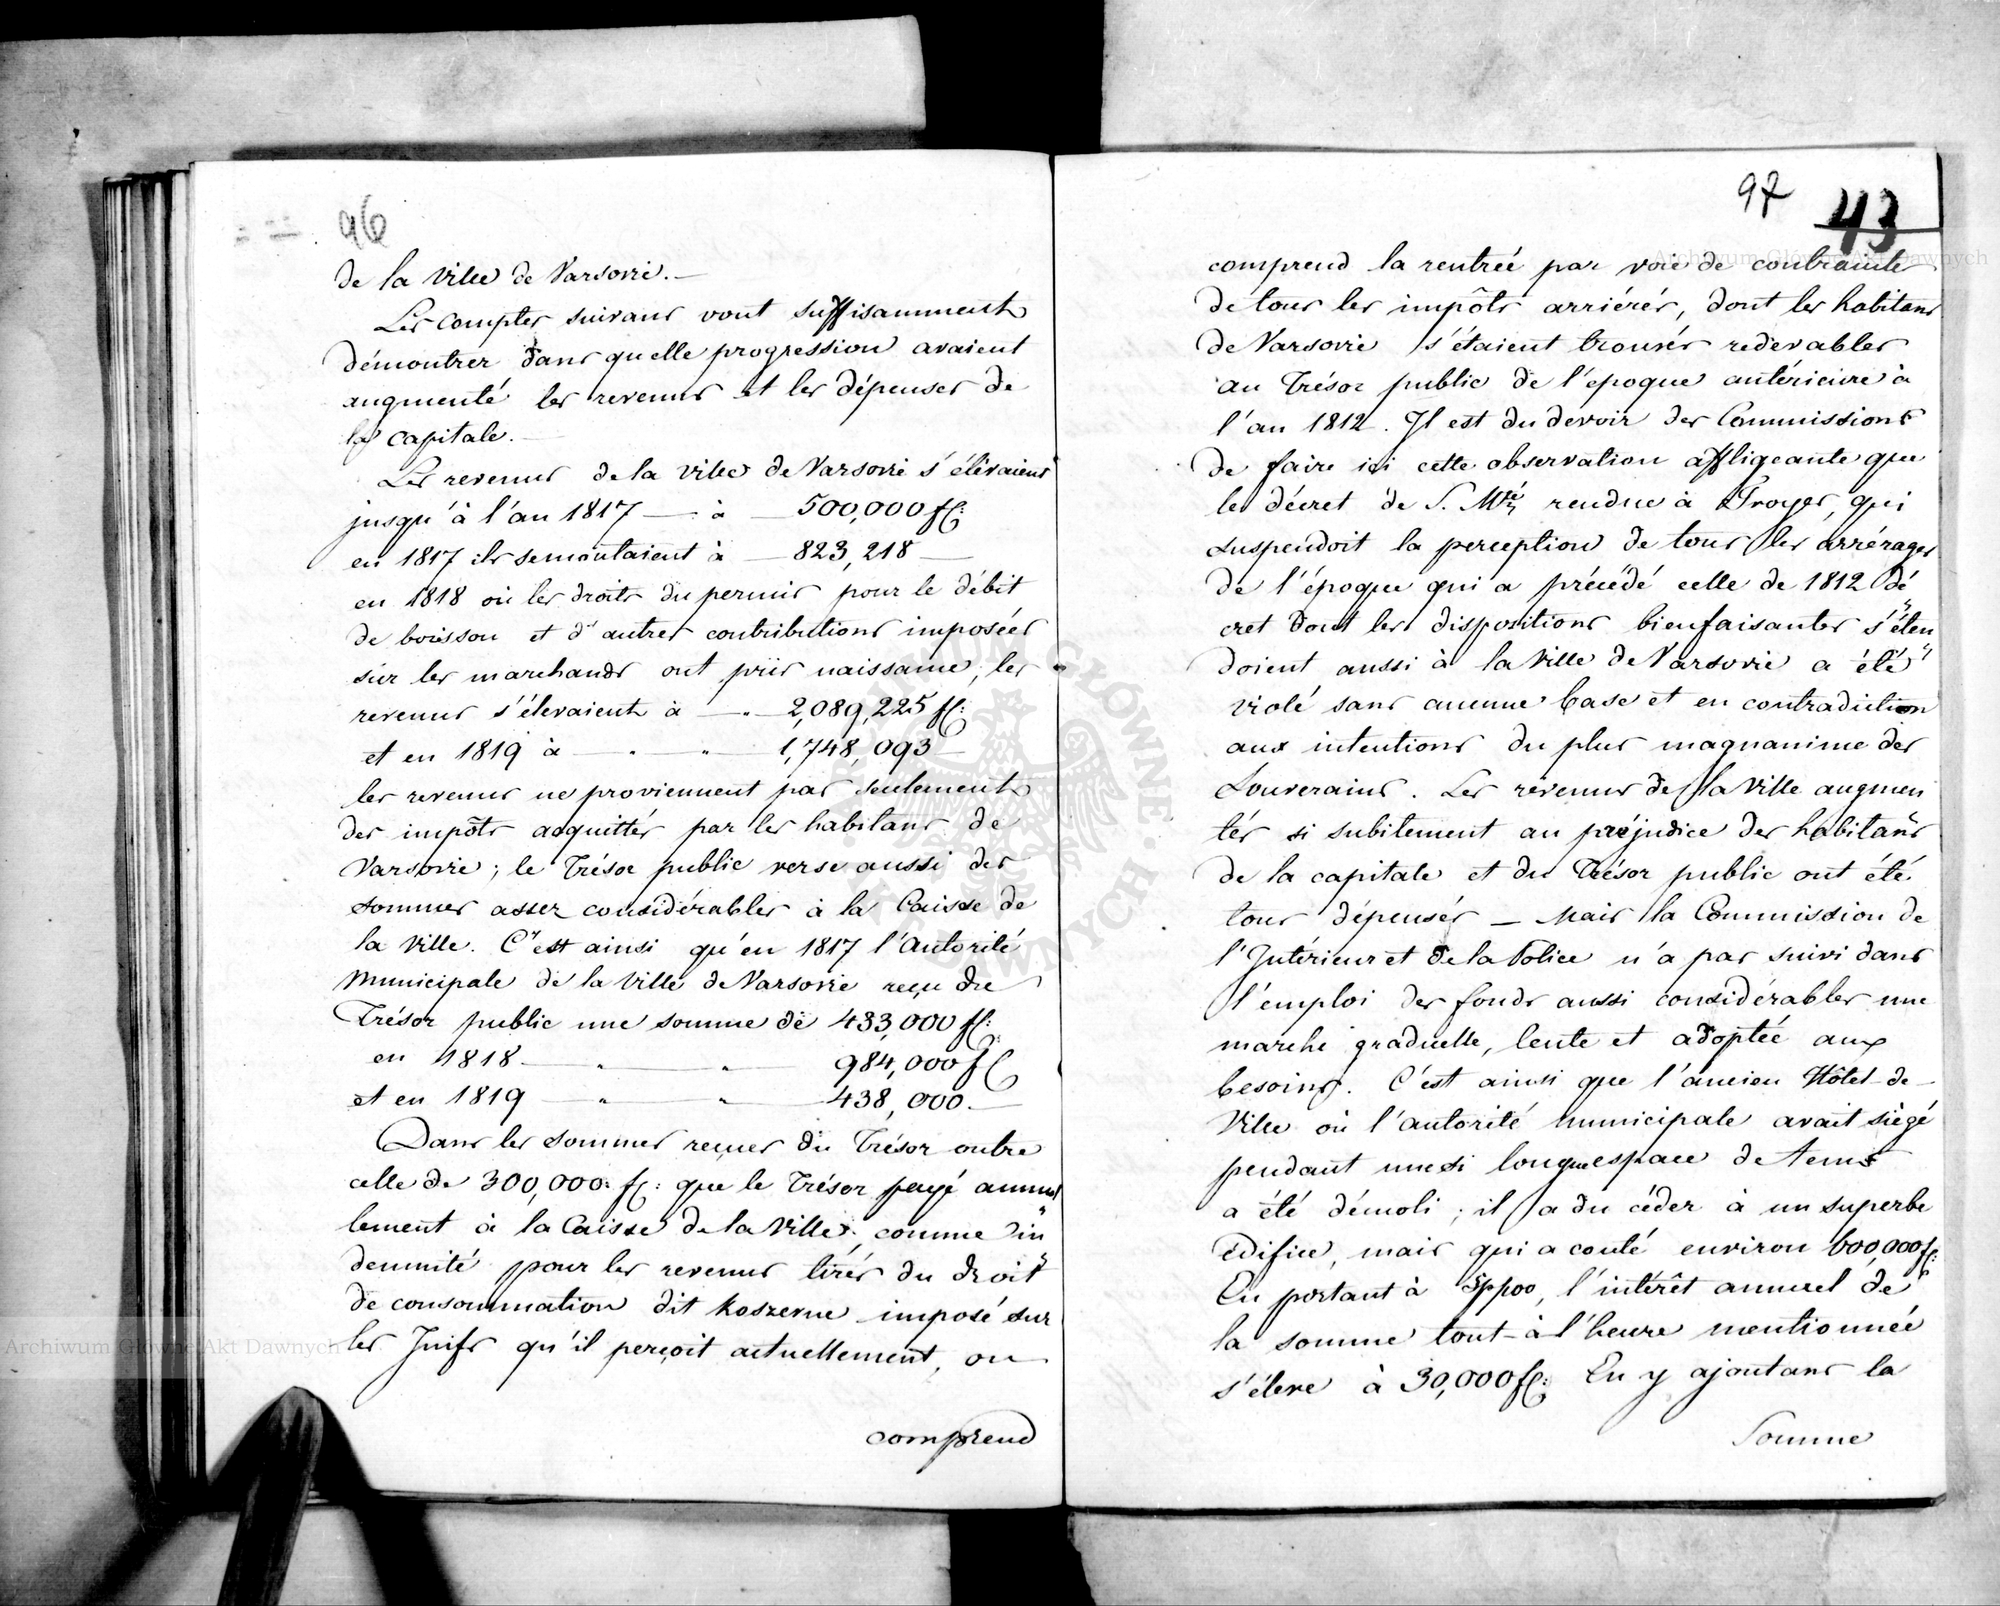 96
de la ville de Varsovie. —
Les comptes suivans vont suffisamment
démontrer dans quelle progression avaient
augmenté les revenus et les dépenses de
la capitale. —
Les revenus de la ville de Varsovie s'élévaient
jusqu'à l'an 1817 — à — 500,000 fl:
en 1817 ils se montaient à — 823,218 —
en 1818 où les droits du permis pour le débit
de boisson et d'autres contributions imposées
sur les marchands ont priis naissance, les
revenus s'élevaient à — " — 2,089,225 fl:
et en 1819 à — " — " — 1,748,093 —
les revenus ne proviennent pas seulement
des impôts acquittés par les habitans de
Varsovie; le Trésor public verse aussi des
sommes assez considérables à la Caisse de
la Ville. C'est ainsi qu'en 1817 l'Autorité
Municipale de la Ville de Varsovie reçu du
Trésor public une somme de 433,000 fl:
en 1818 — " — " — 984,000 fl
et en 1819 — " — " — 438,000. —
Dans les sommes reçues du Trésor outre
celle de 300,000: fl: que le Trésor payé annuel
lement à la Caisse de la Ville, comme in"
demnité pour les revenus tirés du droit
de consommation dit Koszerne imposé sur
les Juifs qu'il perçoit actuellement, on
comprend
97 43
comprend la rentrée par voie de contrainte
de tous les impôts arriérés, dont les habitans
de Varsovie s'étaient trouvés redevables
au Trésor public de l'epoque antérieure à
l'an 1812. Il est du devoir des Commissions
de faire ici cette observation affligeante que
le décret de S. Mté rendue à Troyes, qui
suspendoit la perception de tous les arrérages
de l'époque qui a précédé celle de 1812 dé"
cret dont les dispositions bienfaisantes s'éten"
doient aussi à la Ville de Varsovie a été
violé sans aucune base et en contradiction
aux intentions du plus magnanime des
Souverains. Les revenus de la Ville augmen"
tés si subitement au préjudice des habitans
de la capitale et du Trésor public ont été
tous dépensés — Mais la Commission de
l'Intérieur et de la Police n'a pas suivi dans
l'emploi des fonds aussi considérables une
marche graduelle, lente et adoptée aux
besoins. C'est ainsi que l'ancien Hôtel-de-
Ville où l'autorité municipale avait siégé
pendant une si longue espace de tems
a été démoli; il a du céder à un superbe
édifice, mais qui a couté environ 600,000 fl:
En portant à 5ppoo, l'intérêt annuel de
la somme tout-à-l'heure mentionnée
s'éleve à 30,000 fl: En y ajoutans la
Somme
Archiwum Główne Akt Dawnych
Archiwum Główne Akt Dawnych
ARCHIWUM GŁÓWNE AKT DAWNYCH